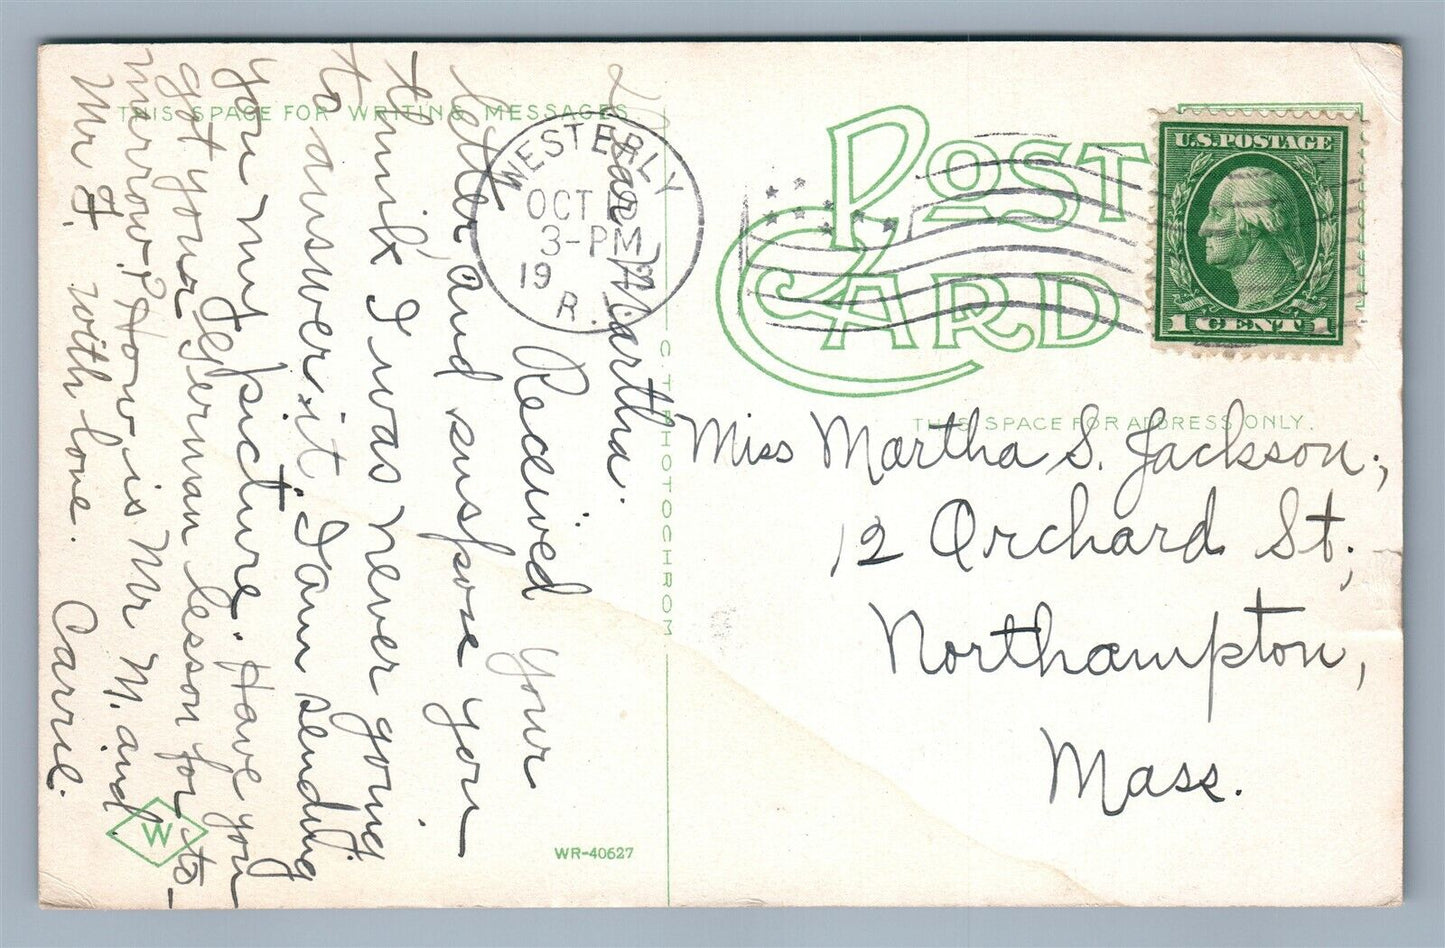 THIS SPACE FOR WRITING MESSAGES
Dear Martha.
Received your
letter and suspose you
think I was never going
to answer it. I am sending
you my picture. Have you
got your German lesson for to-
morrow? How is Mr M. and
Mr F. With love. Carrie.
WESTERLY
OCT
3-PM
19
R.
POST CARD
U.S. POSTAGE
1 CENT 1
THIS SPACE FOR ADDRESS ONLY.
Miss Martha S. Jackson,
12 Orchard St.,
Northampton,
Mass.
C. T. PHOTOCHROM
W
WR-40627